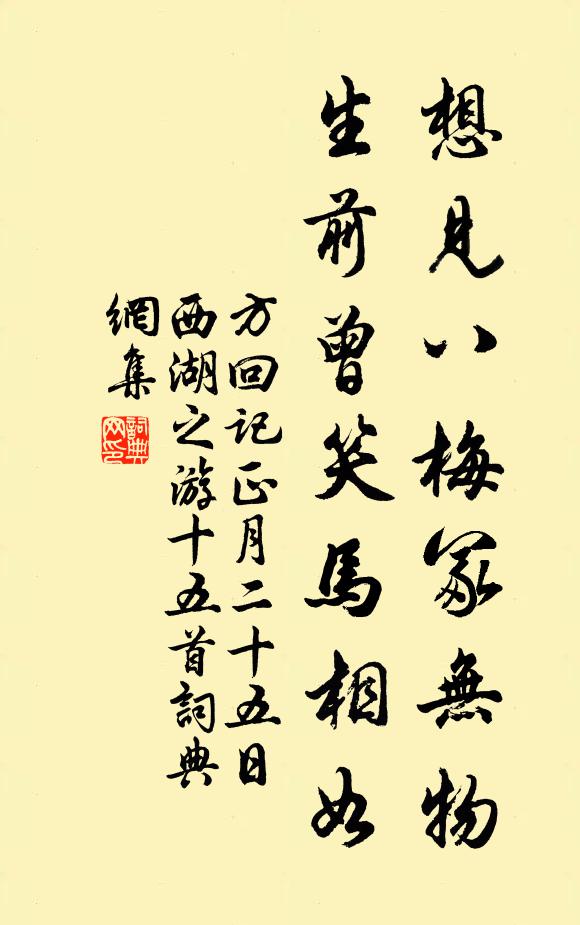 想見八梅冢無物
生前曾笑馬相如
方回記正月二十五日
西湖之游十五首詞典
網集
詞典網印